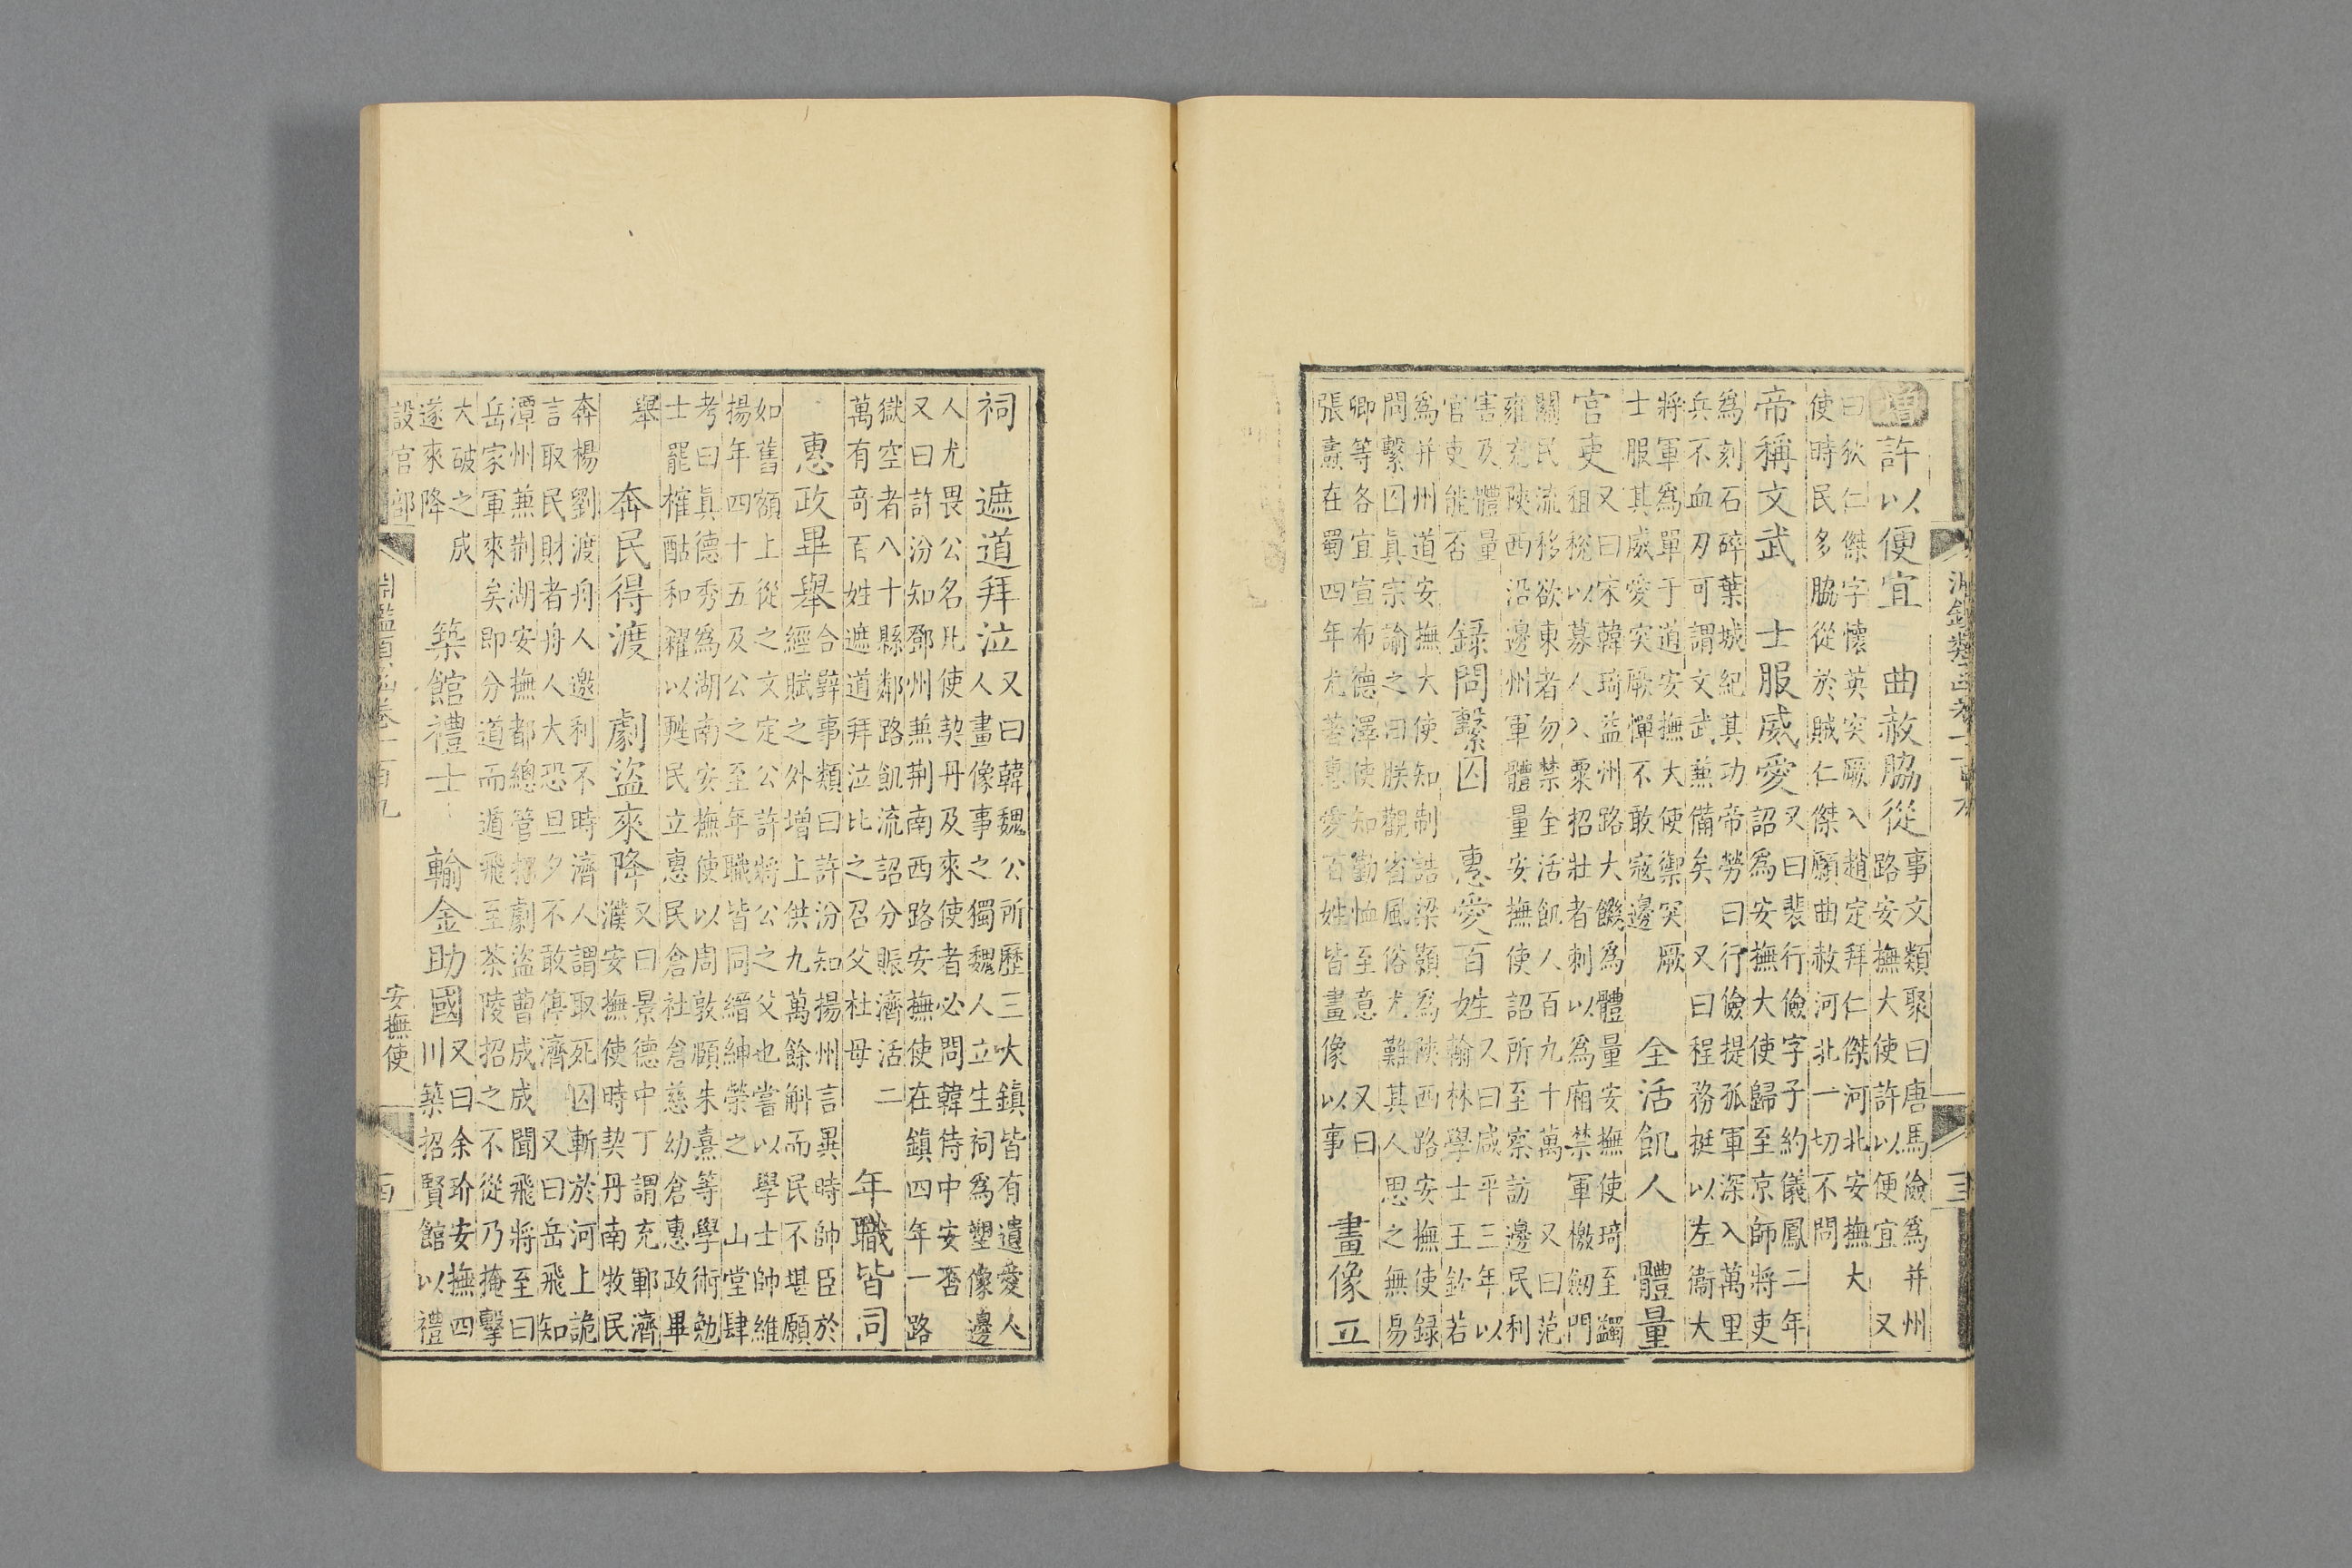 淵鑑類函卷一百九
增 許以便宜 曲赦脇從 事文類聚曰唐馬燧爲并州
路安撫大使許以便宜 又
曰狄仁傑字懷英突厥入趙定拜仁傑河北安撫大
使時民多脇從於賊仁傑願曲赦河北一切不問
帝稱文武 士服威愛 又曰裴行儉字子約儀鳳二年
詔爲安撫大使歸至京師將吏
爲刻石碎葉城紀其功帝勞曰行儉提孤軍深入萬里
兵不血刃可謂文武兼備矣 又曰程務挺以左衞大
將軍爲單于道安撫大使禦突厥
士服其威愛突厥憚不敢寇邊 全活飢人 體量
官吏 又曰宋韓琦益州路大饑爲體量安撫使琦至蠲
租稅以募人入粟招壯者刺以爲廂禁軍檄劒門
關民流移欲東者勿禁全活飢人百九十萬 又曰范
雍充陝西沿邊州軍體量安撫使詔所至察訪邊民利
害及體量
官吏能否 錄問繫囚 惠愛百姓 又曰咸平三年以
翰林學士王欽若
爲并州道安撫大使知制誥梁顥爲陝西路安撫使錄
問繫囚眞宗諭之曰朕觀省風俗尤難其人思之無易
卿等各宜宣布德澤使知勤恤至意 又曰
張燾在蜀四年尤著惠愛百姓皆畫像以事 畫像立
祠 遮道拜泣 又曰韓魏公所歷三大鎮皆有遺愛人
人畫像事之獨魏人立生祠爲塑像邊
人尤畏公名北使契丹及來使者必問韓侍中安否
又曰許汾知鄧州兼荆南西路安撫使在鎮四年一路
獄空者八十縣鄰路飢流詔分賑濟活二
萬有奇百姓遮道拜泣比之召父杜母 年職皆同
惠政畢舉 合辟事類曰許汾知揚州言異時帥臣於
經賦之外增上供九萬餘斛而民不堪願
如舊額上從之文定公許將公之父也嘗以學士帥維
揚年四十五及公之至年職皆同縉紳榮之 山堂肆
考曰眞德秀爲湖南安撫使以周敦頤朱熹等學術勉
士罷榷酤和糴以甦民立惠民倉社倉慈幼倉惠政畢
舉 奔民得渡 劇盜來降 又曰景德中丁謂充鄆濟
濮安撫使時契丹南牧民
奔楊劉渡舟人邀利不時濟人謂取死囚斬於河上詭
言取民財者舟人大恐旦夕不敢停濟 又曰岳飛知
潭州兼荆湖安撫都總管招劇盜曹成成聞飛將至曰
岳家軍來矣即分道而遁飛至茶陵招之不從乃掩擊
大破之成
遂來降 築館禮士 輸金助國 又曰余玠安撫四
川築招賢館以禮
設官部
淵鑑類函卷一百九
安撫使